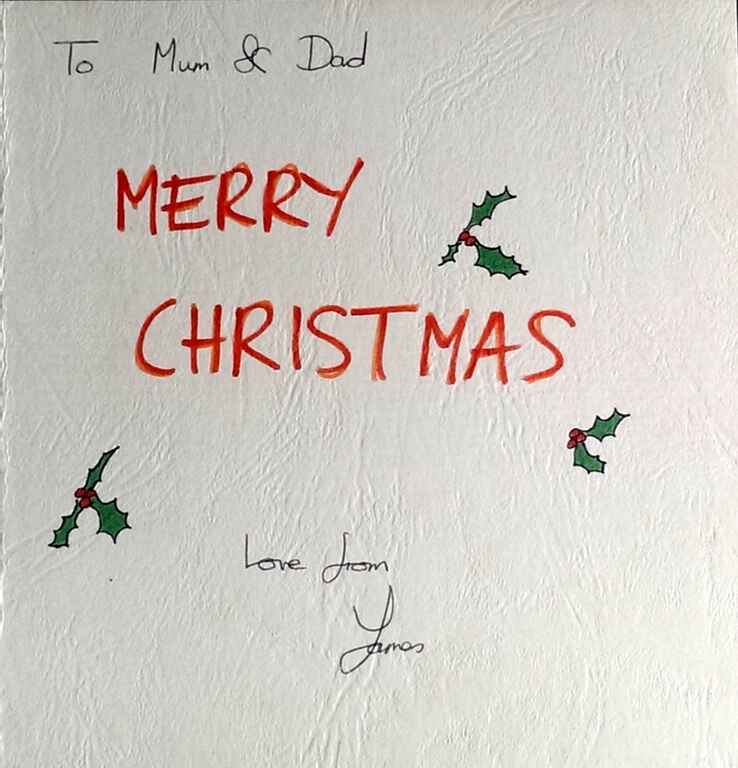 To Mum & Dad
MERRY
CHRISTMAS
Love from
James